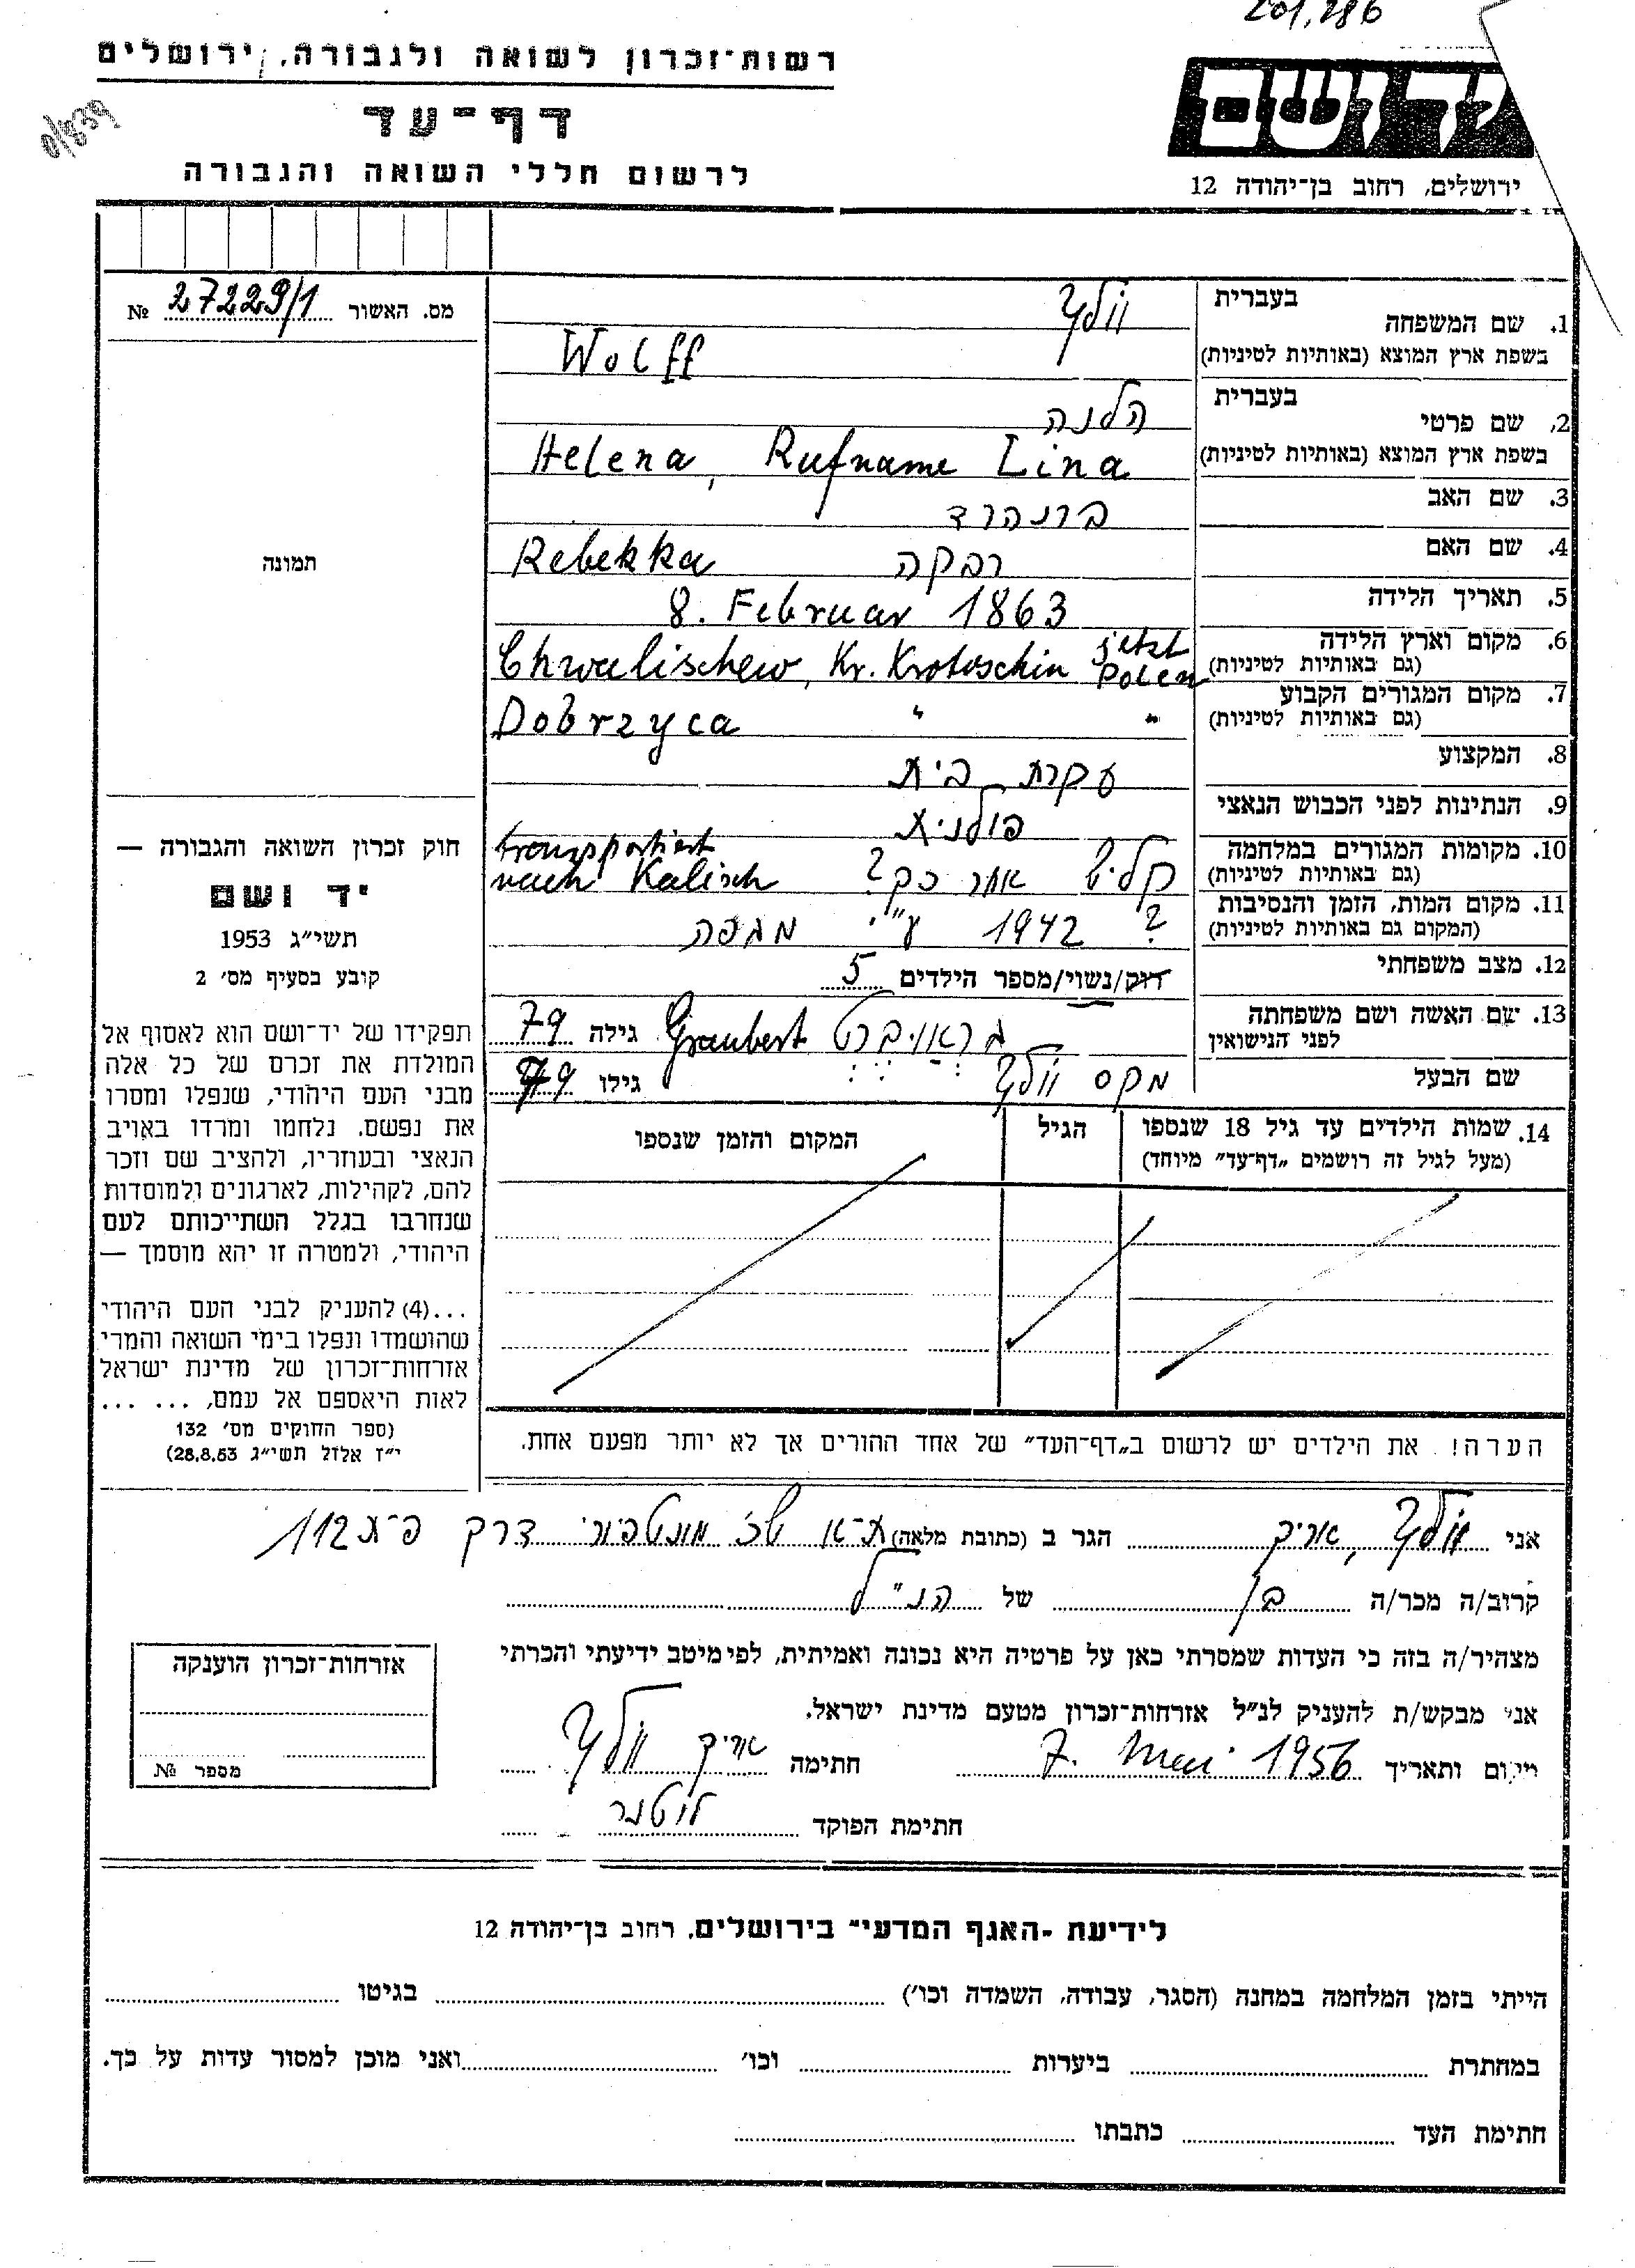 201,286
רשות־זכרון לשואה ולגבורה, ירושלים
דף־עד
לרשום חללי השואה והגבורה
0/839
ידושם
ירושלים, רחוב בן־יהודה 12
מס. האשור 27229/1 №
תמונה
1. שם המשפחה
בעברית וולף
בשפת ארץ המוצא (באותיות לטיניות) Wolff
2. שם פרטי
בעברית הלנה
בשפת ארץ המוצא (באותיות לטיניות) Helena, Rufname Lina
3. שם האב ברנהרד
4. שם האם רבקה Rebekka
5. תאריך הלידה 8. Februar 1863
6. מקום וארץ הלידה
(גם באותיות לטיניות) Chwalischew, Kr. Krotoschin jetzt Polen
7. מקום המגורים הקבוע
(גם באותיות לטיניות) Dobrzyca " "
8. המקצוע עקרת בית
9. הנתינות לפני הכבוש הנאצי פולנית
10. מקומות המגורים במלחמה
(גם באותיות לטיניות) קליש אחר כך? transportiert nach Kalisch
11. מקום המות, הזמן והנסיבות
(המקום גם באותיות לטיניות) ? 1942 ע"י מגפה
12. מצב משפחתי רוק/נשוי/מספר הילדים 5
13. שם האשה ושם משפחתה
לפני הנישואין גראויברט Graubert גילה 79
שם הבעל מקס וולף גילו 79
14. שמות הילדים עד גיל 18 שנספו
(מעל לגיל זה רושמים "דף־עד" מיוחד)
הגיל
המקום והזמן שנספו
הערה! את הילדים יש לרשום ב"דף־העד" של אחד ההורים אך לא יותר מפעם אחת.
חוק זכרון השואה והגבורה —
יד ושם
תשי"ג 1953
קובע בסעיף מס׳ 2
תפקידו של יד־ושם הוא לאסוף אל
המולדת את זכרם של כל אלה
מבני העם היהודי, שנפלו ומסרו
את נפשם, נלחמו ומרדו באויב
הנאצי ובעוזריו, ולהציב שם וזכר
להם, לקהילות, לארגונים ולמוסדות
שנחרבו בגלל השתייכותם לעם
היהודי, ולמטרה זו יהא מוסמך —
...(4) להעניק לבני העם היהודי
שהושמדו ונפלו בימי השואה והמרי
אזרחות־זכרון של מדינת ישראל
לאות היאספם אל עמם, ... ...
(ספר החוקים מס׳ 132
י"ז אלול תשי"ג 28.8.53)
אני וולף, אריך הגר ב (כתובת מלאה) ת־א שכ׳ מונטפיורי דרך פ־ת 112
קרוב/ה מכר/ה בן של הנ"ל
מצהיר/ה בזה כי העדות שמסרתי כאן על פרטיה היא נכונה ואמיתית, לפי מיטב ידיעתי והכרתי
אני מבקש/ת להעניק לנ"ל אזרחות־זכרון מטעם מדינת ישראל.
מקום ותאריך 7. Mai 1956 חתימה אריך וולף
חתימת הפוקד
אזרחות־זכרון הוענקה
מספר №
לידיעת "האגף המדעי" בירושלים, רחוב בן־יהודה 12
הייתי בזמן המלחמה במחנה (הסגר, עבודה, השמדה וכו׳) בגיטו
במחתרת ביערות וכו׳ ואני מוכן למסור עדות על כך.
חתימת העד כתבתו